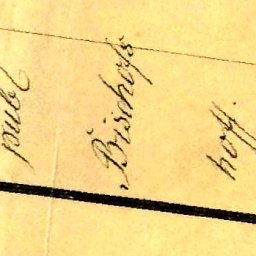 publ
Bischofs
hof.